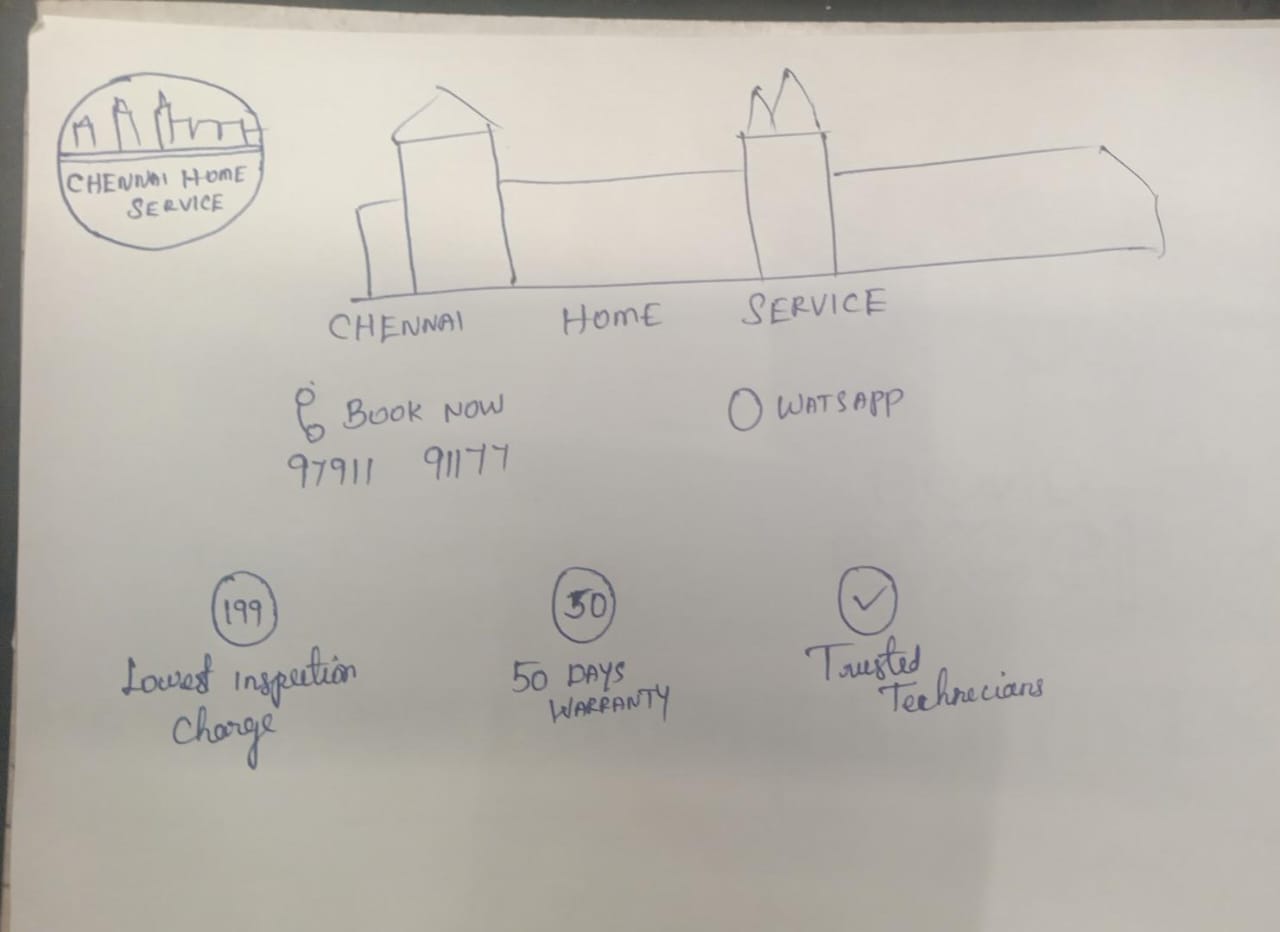 CHENNAI HOME
SERVICE
CHENNAI HOME SERVICE
BOOK NOW
WATSAPP
97911 91177
199
50
Lowest inspection
Charge
50 DAYS
WARRANTY
Trusted
Technecians